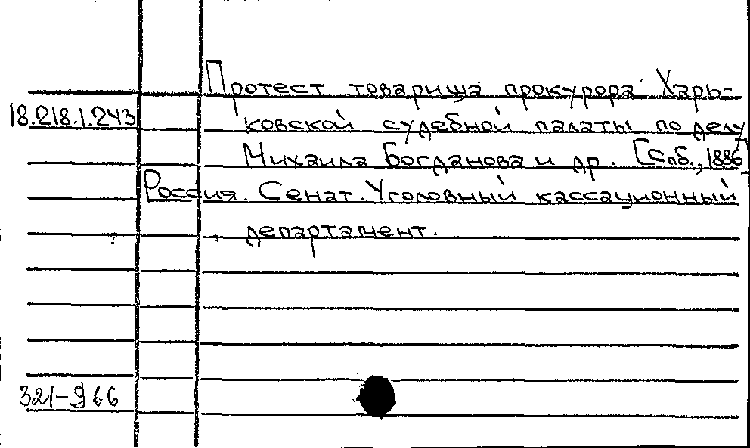 Протест товарища прокурора Харь-
18.218.1.243 ковской судебной палаты по делу
Михаила Богданова и др. [Спб., 1886]
Россия. Сенат. Уголовный кассационный
департамент.
321-966